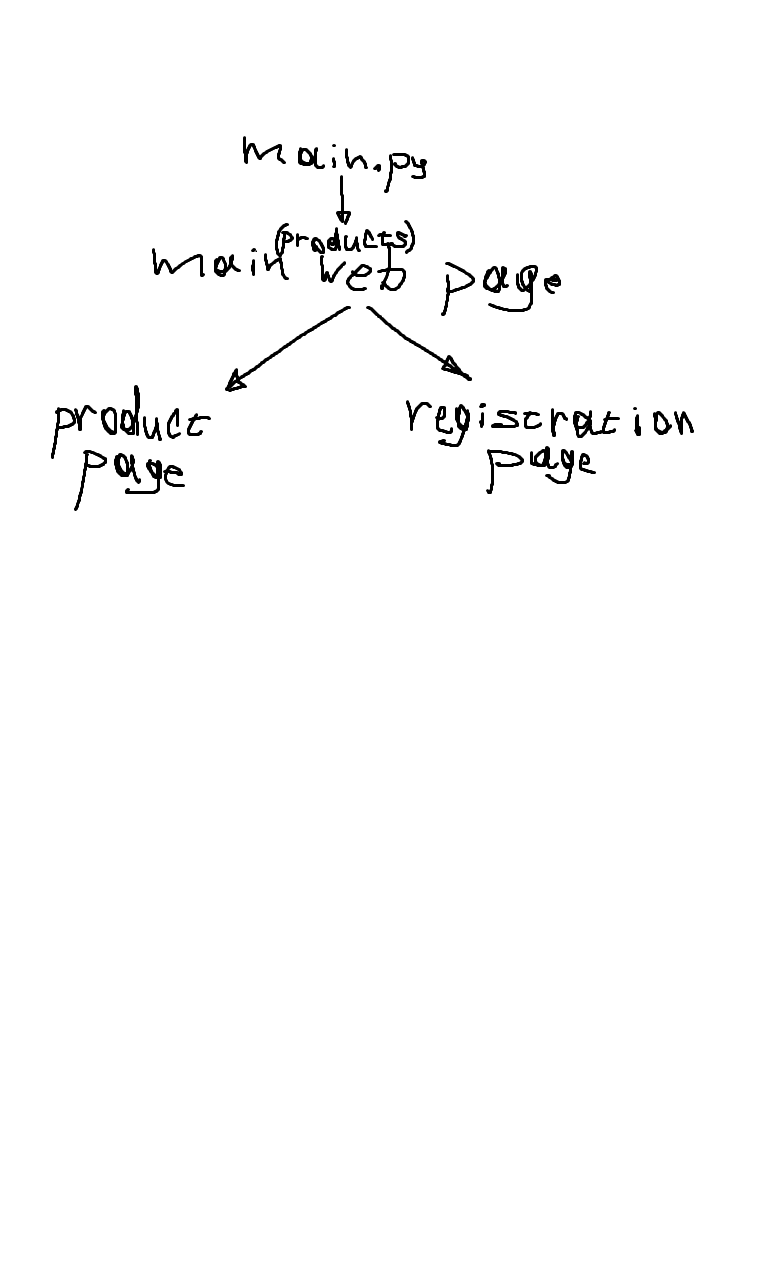 main.py
(products)
main web page
product
page
registration
page